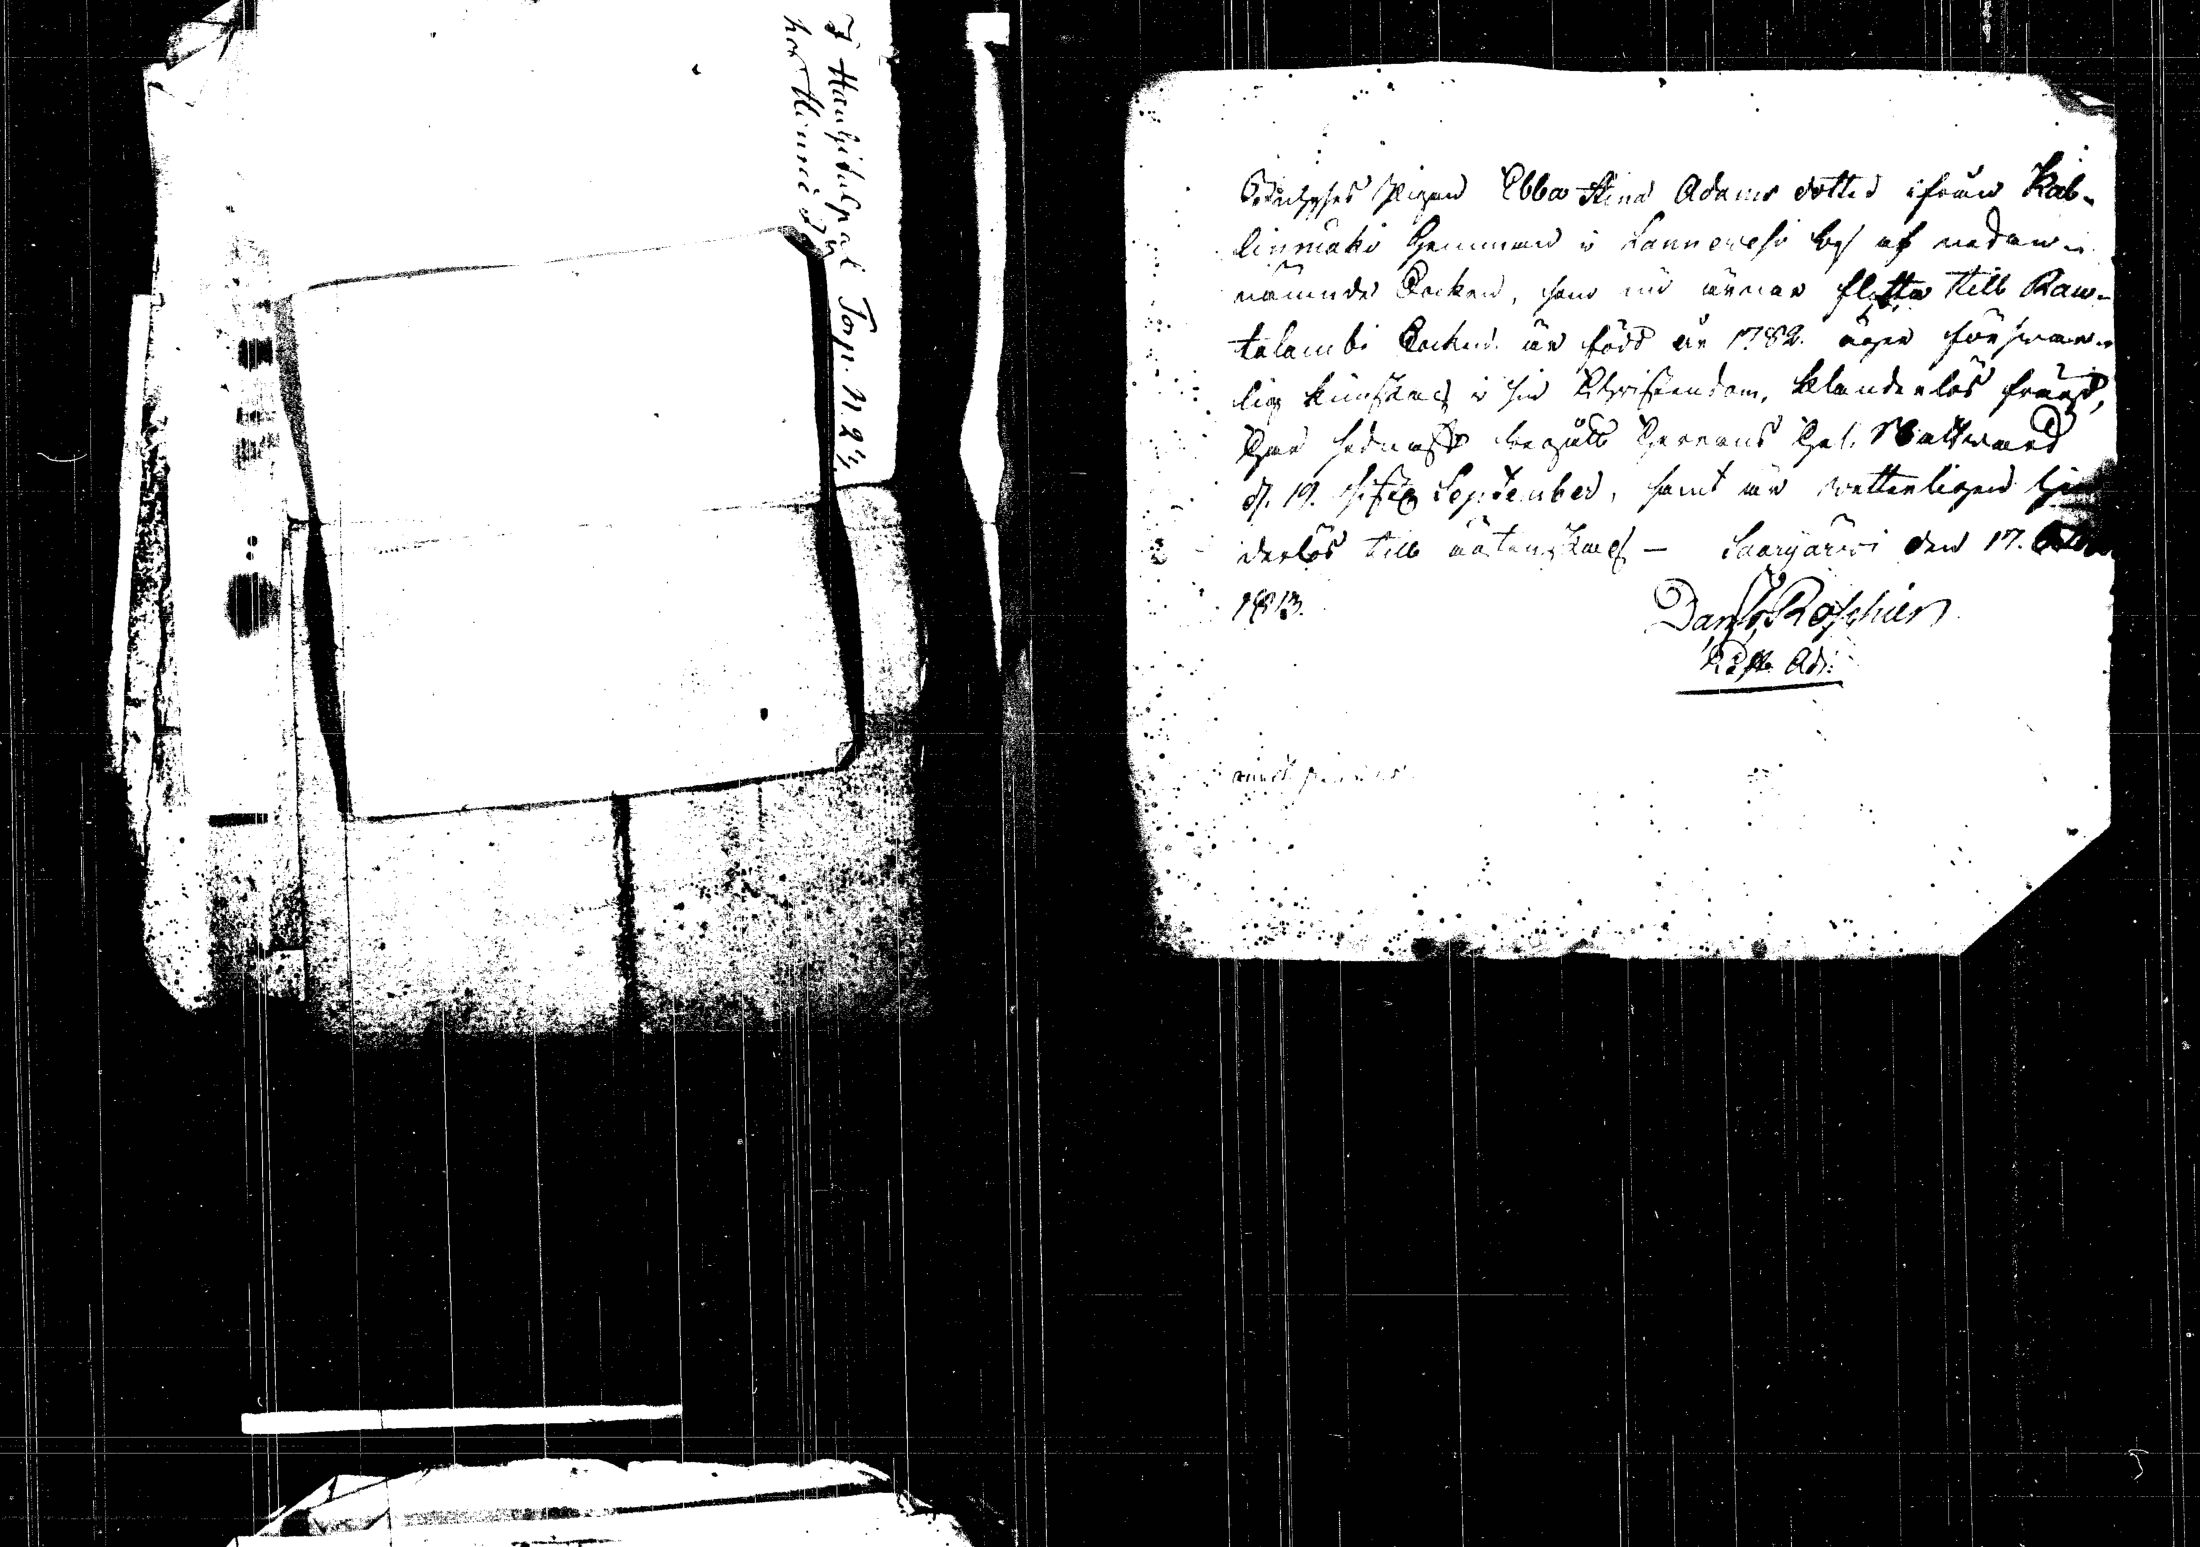 I Hankasalmi Torp. N. 24.
hos Minnes
Pigan Ebba Stina Adams dotter ifrån Kab-
linmäki hemman i Lannevesi by af nedan-
nämnde Socken, som nu ärnar fletta till Rau-
talambi Socken, är född år 1782. äger försvar-
lig kunskap i sin Christendom, klanderlös frägd,
har sednast begått Herrans Hel. Nattward
d. 19. sistl. September, samt är wetterligen hin
derlös till äktenskap — Saarijärvi den 17. Octob
1813.
Dan. Roschier
Adj.